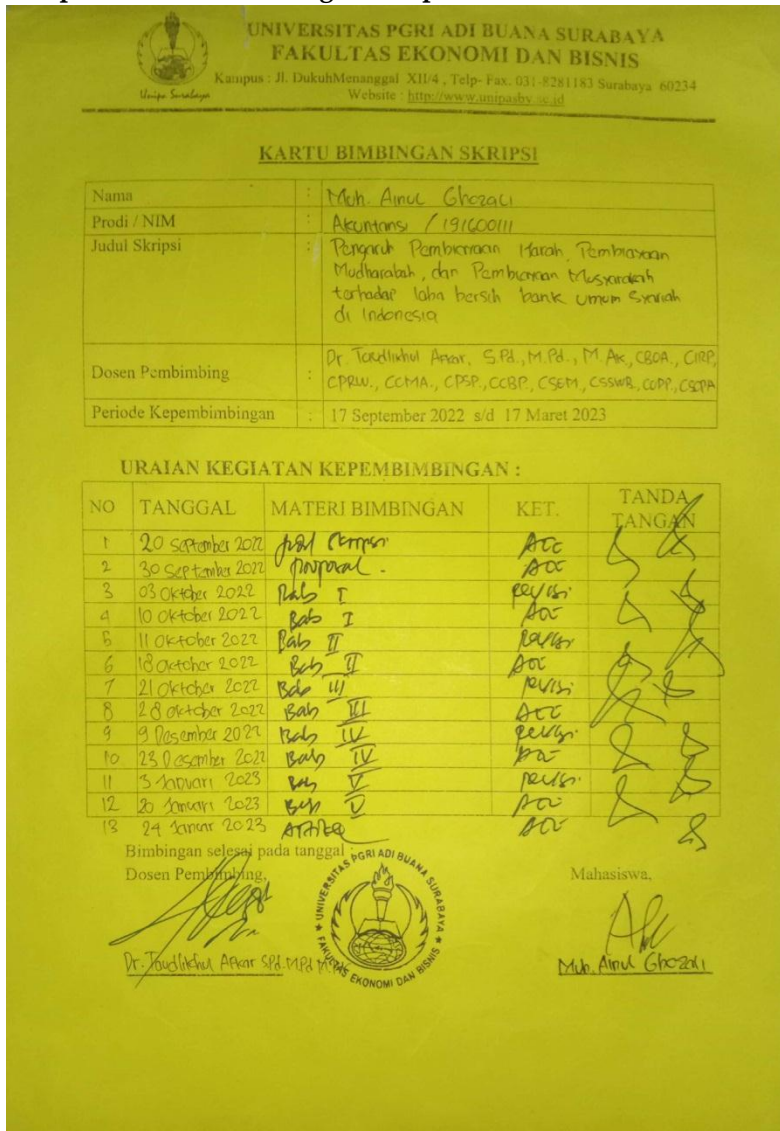 UNIVERSITAS PGRI ADI BUANA SURABAYA
FAKULTAS EKONOMI DAN BISNIS
Kampus : Jl. DukuhMenanggal XII/4 , Telp- Fax. 031-8281183 Surabaya 60234
Website : http://www.unipasby.ac.id
Unipa Surabaya
KARTU BIMBINGAN SKRIPSI
Nama : Muh. Ainul Ghozali
Prodi / NIM : Akuntansi / 191600111
Judul Skripsi : Pengaruh Pembiayaan Ijarah, Pembiayaan
Mudharabah, dan Pembiayaan Musyarakah
terhadap laba bersih bank umum Syariah
di Indonesia
Dosen Pembimbing : Dr. Taudlikhul Afkar, S.Pd., M.Pd., M.Ak, CBOA., CIRP,
CPRW., CCMA., CPSP., CCBP., CSEM., CSSWB, COPP., CSOPA
Periode Kepembimbingan : 17 September 2022 s/d 17 Maret 2023
URAIAN KEGIATAN KEPEMBIMBINGAN :
NO TANGGAL MATERI BIMBINGAN KET. TANDA TANGAN
1 20 September 2022 Judul Skripsi ACC
2 30 September 2022 Proposal. ACC
3 03 Oktober 2022 Bab I revisi
4 10 Oktober 2022 Bab I ACC
5 11 Oktober 2022 Bab II revisi
6 18 Oktober 2022 Bab II ACC
7 21 Oktober 2022 Bab III revisi
8 28 Oktober 2022 Bab III ACC
9 9 Desember 2022 Bab IV revisi
10 23 Desember 2022 Bab IV ACC
11 3 Januari 2023 Bab V revisi
12 20 Januari 2023 Bab V ACC
13 24 Januar 2023 ACC
Bimbingan selesai pada tanggal :
Dosen Pembimbing, Mahasiswa,
UNIVERSITAS PGRI ADI BUANA SURABAYA
FAKULTAS EKONOMI DAN BISNIS
Dr. Taudlikhul Afkar S.Pd. M.Pd
Muh. Ainul Ghozali